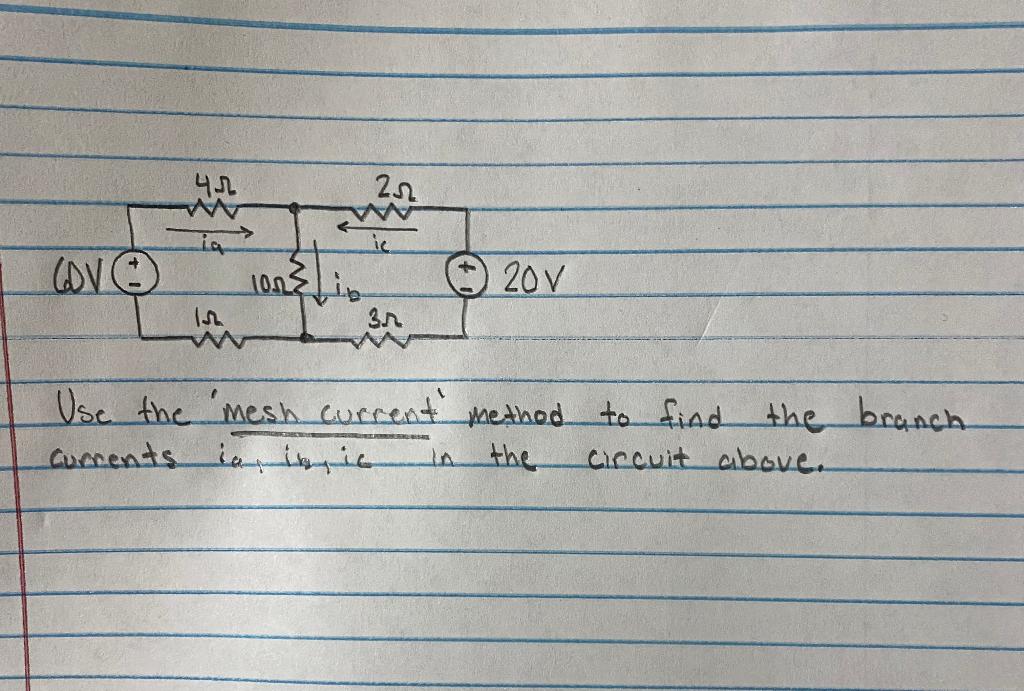 4Ω 2Ω
ia ic
60V + - 10Ω ib + - 20V
1Ω 3Ω
Use the 'mesh current' method to find the branch
currents ia, ib, ic in the circuit above.